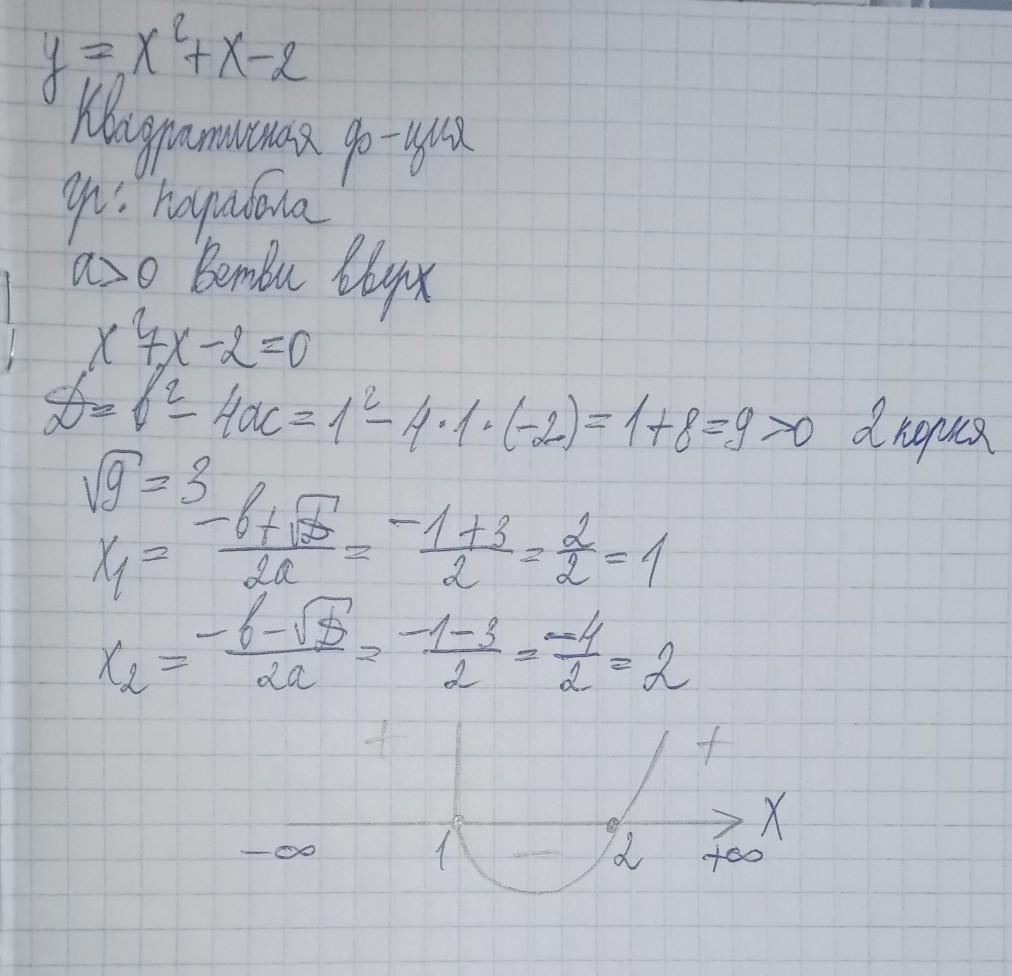 y = x² + x - 2
Квадратичная ф-ция
гр: парабола
a>0 Ветви вверх
x² + x - 2 = 0
D = b² - 4ac = 1² - 4·1·(-2) = 1+8 = 9 >0 2 корня
√9 = 3
x₁ = (-b+√D)/2a = (-1+3)/2 = 2/2 = 1
x₂ = (-b-√D)/2a = (-1-3)/2 = -4/2 = 2
+ +
x
-∞ 1 - 2 +∞